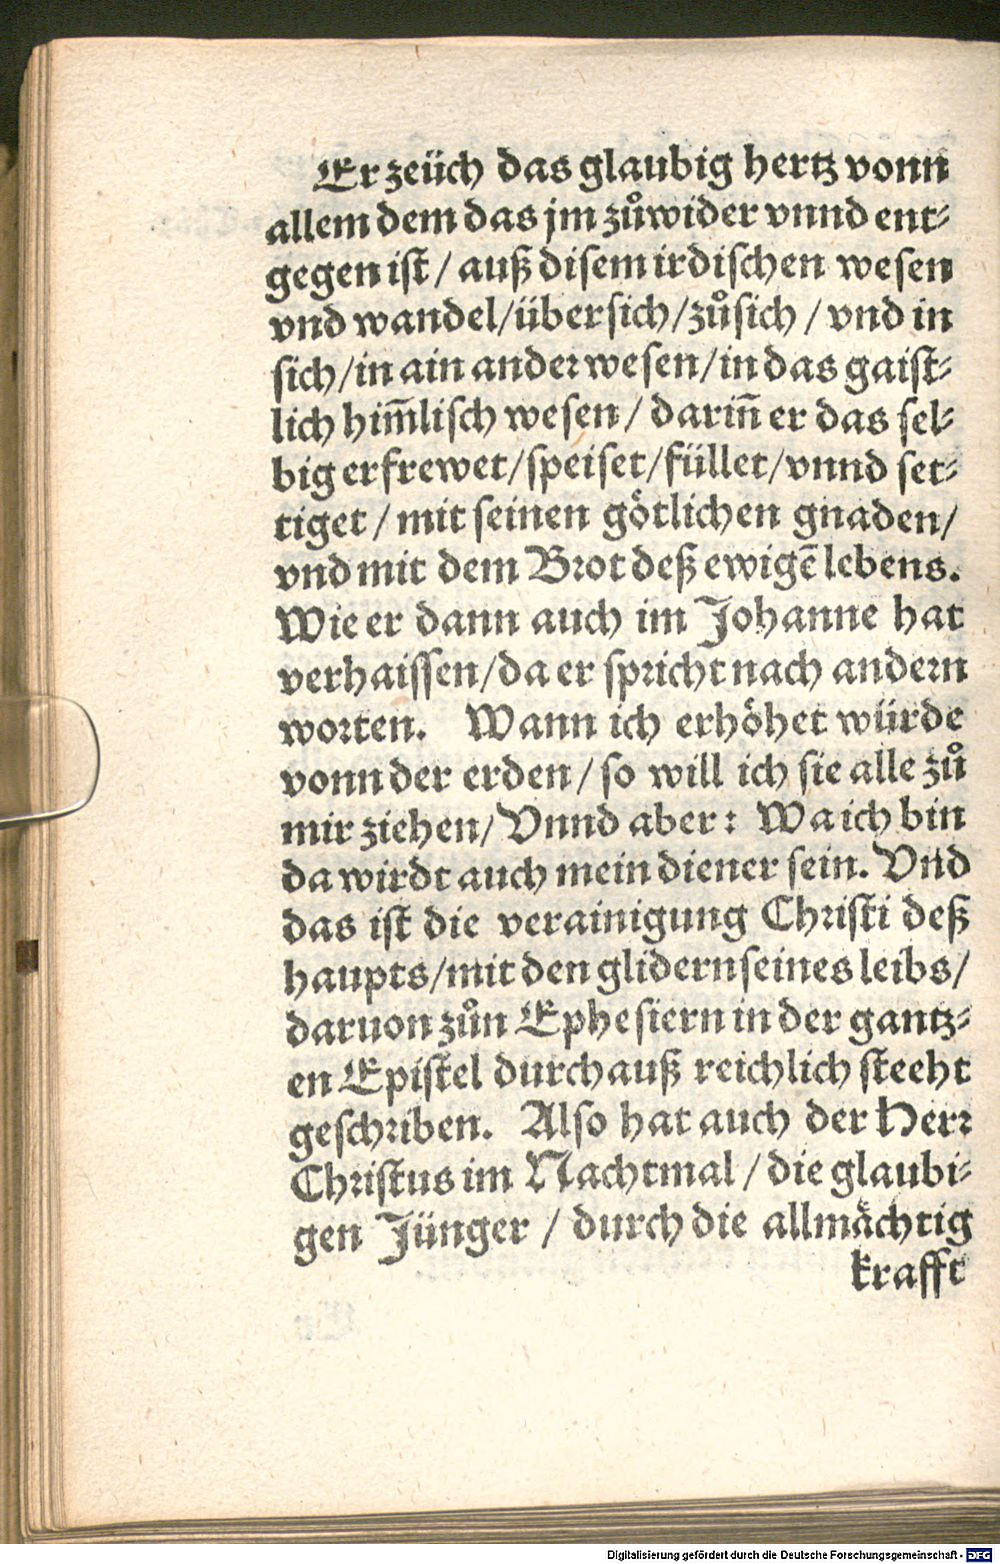 Er zeüch das glaubig hertz vonn
allem dem das jm zůwider vnnd ent⸗
gegen ist / auß disem irdischen wesen
vnd wandel/übersich/zůsich / vnd in
sich/in ain ander wesen/in das gaist⸗
lich him̄lisch wesen / darin̄ er das sel⸗
big erfrewet/speiset/füllet/vnnd set⸗
tiget / mit seinen götlichen gnaden/
vnd mit dem Brot deß ewigē lebens.
Wie er dann auch im Johanne hat
verhaissen/da er spricht nach andern
worten. Wann ich erhöhet würde
vonn der erden / so will ich sie alle zů
mir ziehen/ Vnnd aber: Wa ich bin
da wirdt auch mein diener sein. Vnd
das ist die verainigung Christi deß
haupts/mit den glidern seines leibs/
daruon zůn Ephesiern in der gantz⸗
en Epistel durchauß reichlich steeht
geschriben. Also hat auch der Herr
Christus im Nachtmal / die glaubi⸗
gen Jünger / durch die allmächtig
krafft
Digitalisierung gefördert durch die Deutsche Forschungsgemeinschaft - DFG